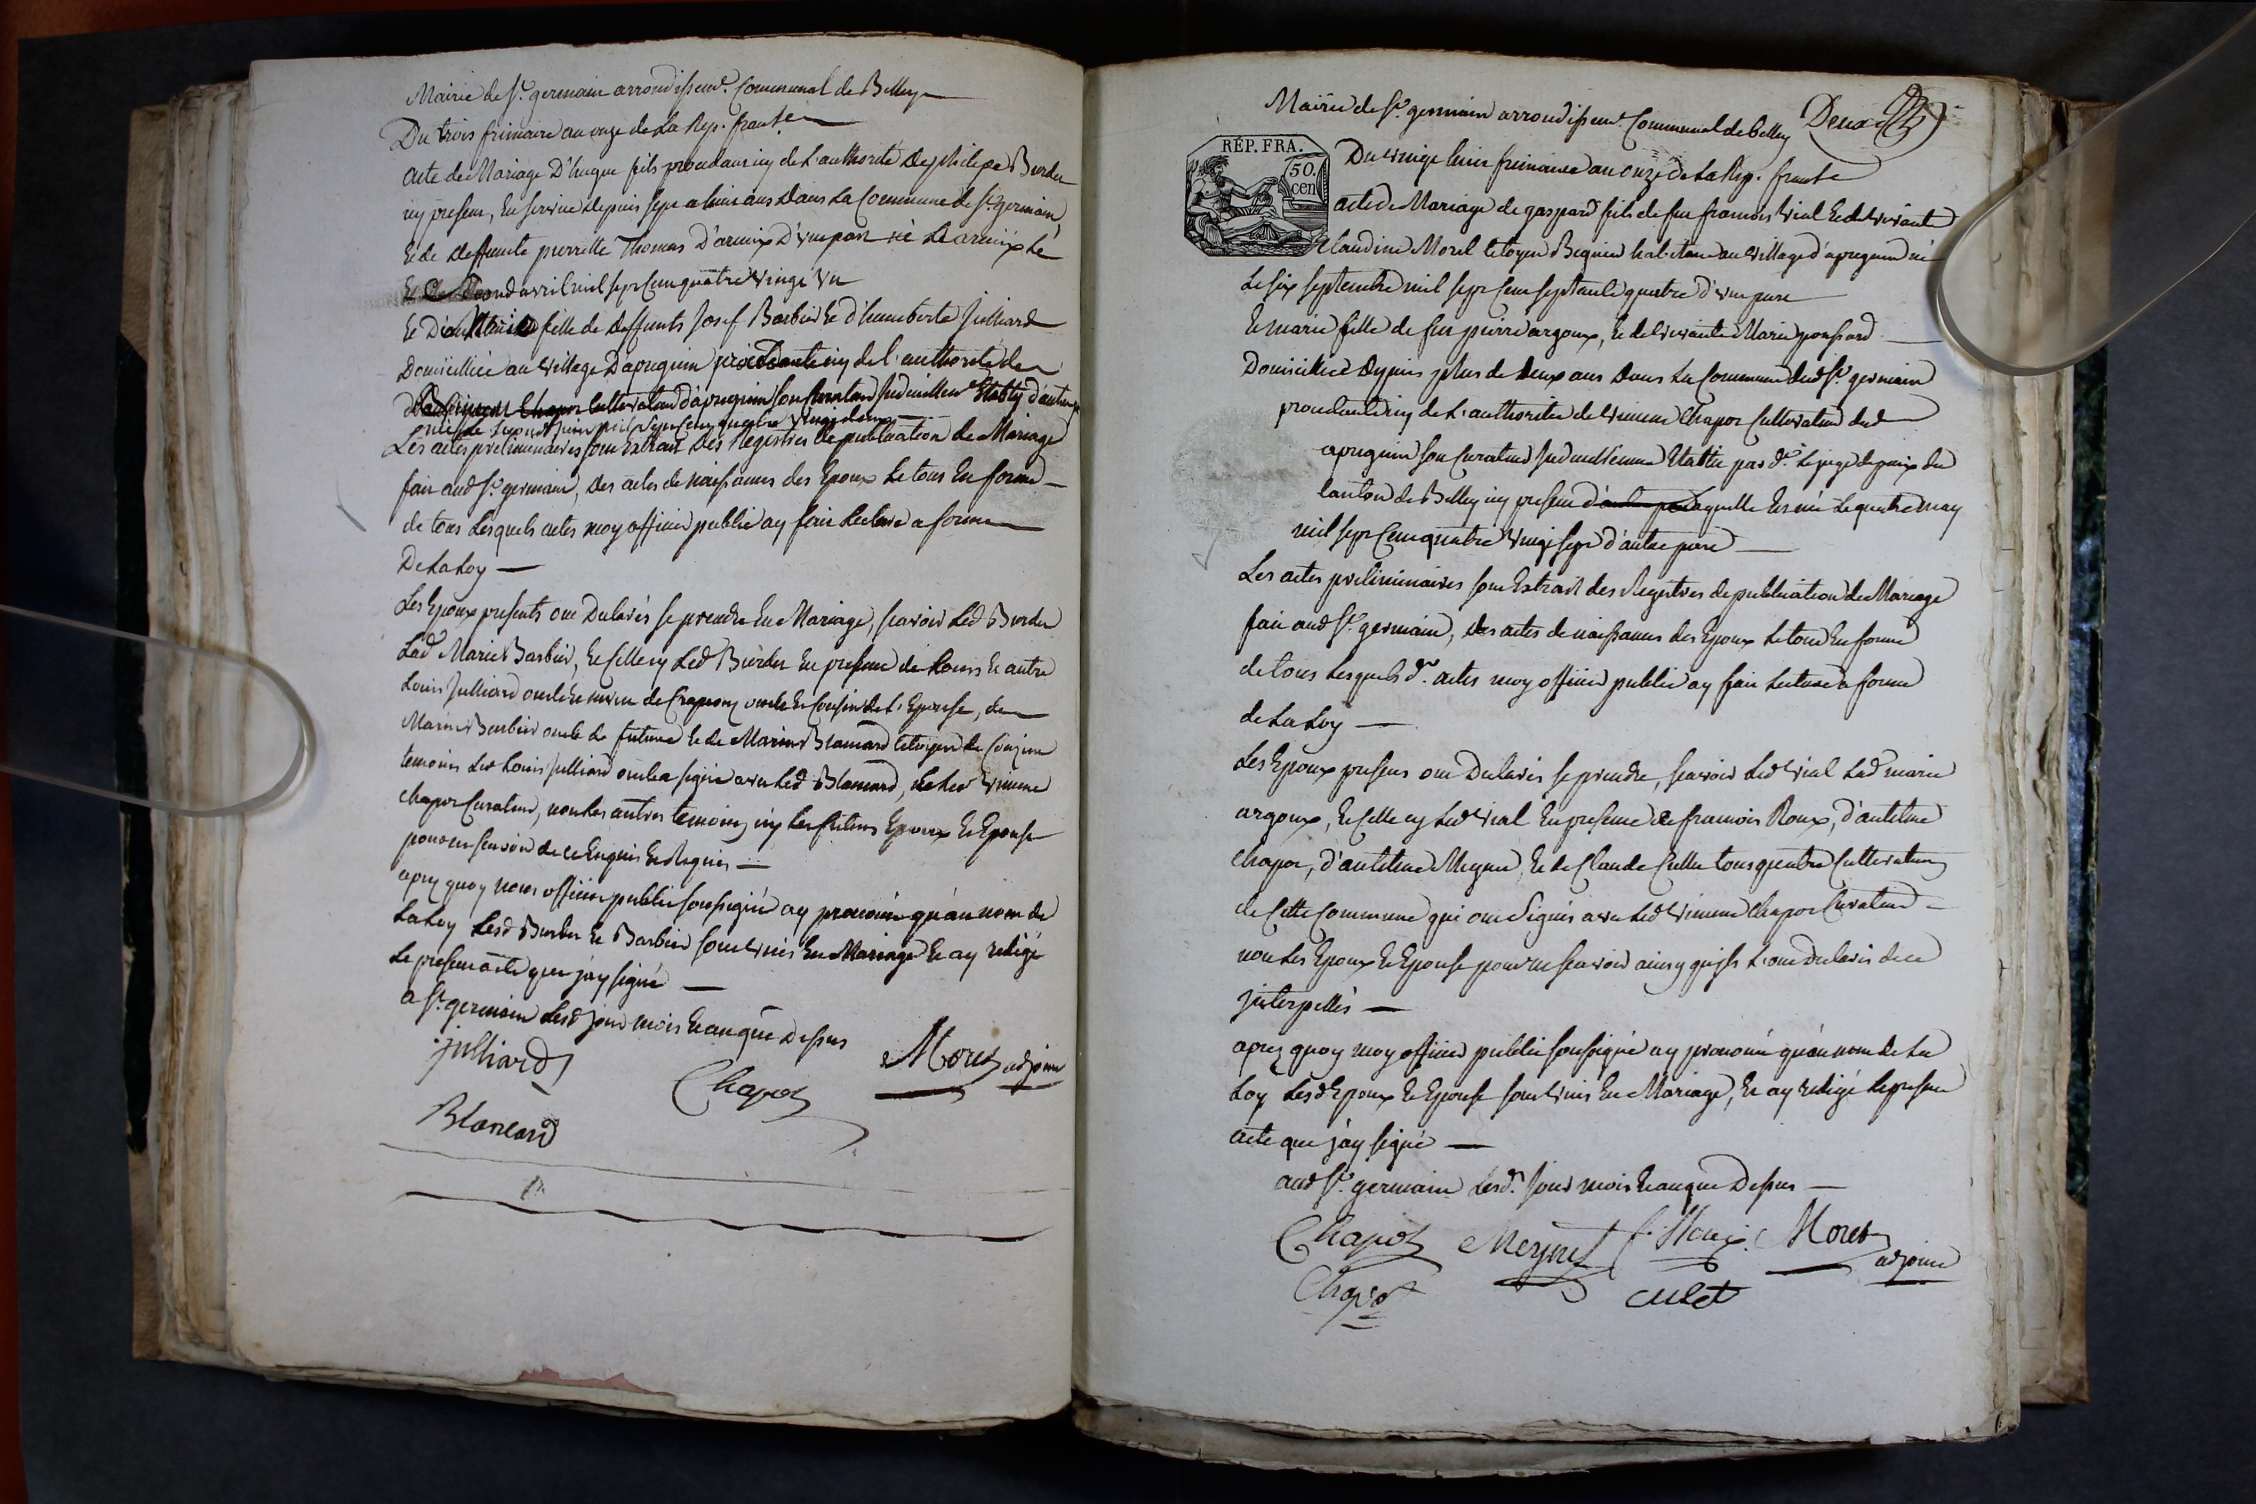 Mairie de St. germain arrondissemt. Communal de Belley
Du trois frimaire an onze de la Rep. franse
acte de Mariage D'hugue fils procedant icy de l'authorité de philipe Burdet
icy present, En service depuis sept a huit ans dans la Commune de St. germain
et de deffunte pierrette Thomas D'armix D'une part né a armix le
second avril mil sept Cent quatre vingt un
Et Marie fille de deffunts Josef Barbier et d'humberte Julliard
Domiciliée au village Dapregnin procedante icy de l'authorité de
Chapot Cultivateur d'apregnin son Curateur Etably d'autre part
née le second juin mil sept Cent quatre vingt deux
Les actes preliminaires sont Extrait des Registres de publication de Mariage
fait aud St. germain, des actes de naissances des Epoux le tout En forme
de tous lesquels actes moy officier public ay fait Lecture a forme
De la Loy —
Les Epoux presents ont Declarés se prendre En Mariage, scavoir led Burdet
lad Marie Barbier, et celle cy led Burdet En presence de Louis et autre
Louis Julliard oncle et cousin de l'Epouse, de
Marin Barbier oncle de future et de Marin Blancard
temoins led Louis Julliard oncle a signé avec led Blancard, et led
chapot Curateur, non les autres temoins ny les futurs Epoux et Epouse
pour ne scavoir de ce Enquis et Requis —
apres quoy nous officier public soussigné ay prononcé qu'au nom de
La Loy lesd Burdet et Barbier sont unis En Mariage et ay redigé
le present acte que j'ay signé —
a St. germain lesd jour mois et an que Dessus
julliard
Chapot
Moret adjoint
Blancard
Mairie de St. germain arrondissemt. Communal de belley
Deux
RÉP. FRA.
50.
cen
Du vingt huit frimaire an onze de la Rep. franse
acte de Mariage de gaspard fils de feu francois vial et de vivante
Claudine Morel habitant au village d'apregnin né
Le six septembre mil sept Cent septante quatre d'une part
Et marie fille de feu pierre argoux, et de vivante Marie ponsard
Domiciliée Depuis plus de deux ans Dans la Commune dud St. germain
procedante icy de l'authorité de Chapot Cultivateur dud
apregnin son Curateur Etablie par Le juge de paix du
Canton de Belley icy present laquelle Est née le quatre may
mil sept Cent quatre vingt sept d'autre part —
Les actes preliminaires sont Extrait des Registres de publication de Mariage
fait aud St. germain, des actes de naissances des Epoux le tout En forme
de tous lesquels dt. actes moy officier public ay fait Lecture a forme
de la Loy —
Les Epoux presens ont Declarés se prendre, scavoir led vial Lad marie
argoux, et celle cy led vial En presence de francois Roux, d'antelme
chapot, d'antelme Meynet, et de Claude Cullet tous quatre Cultivateurs
de Cette Commune qui ont signés avec led chapot Curateur —
non les Epoux et Epouse pour ne scavoir ainsy qu'ils l'ont Declarés de ce
jnterpellés —
apres quoy moy officier public soussigné ay prononcé qu'au nom de la
Loy lesd Epoux et Epouse sont unis En Mariage, et ay redigé le present
acte que j'ay signé —
aud St. germain lesd. jour mois et an que Dessus —
Chapot Meynet f. Roux Moret adjoint
Chapot culet